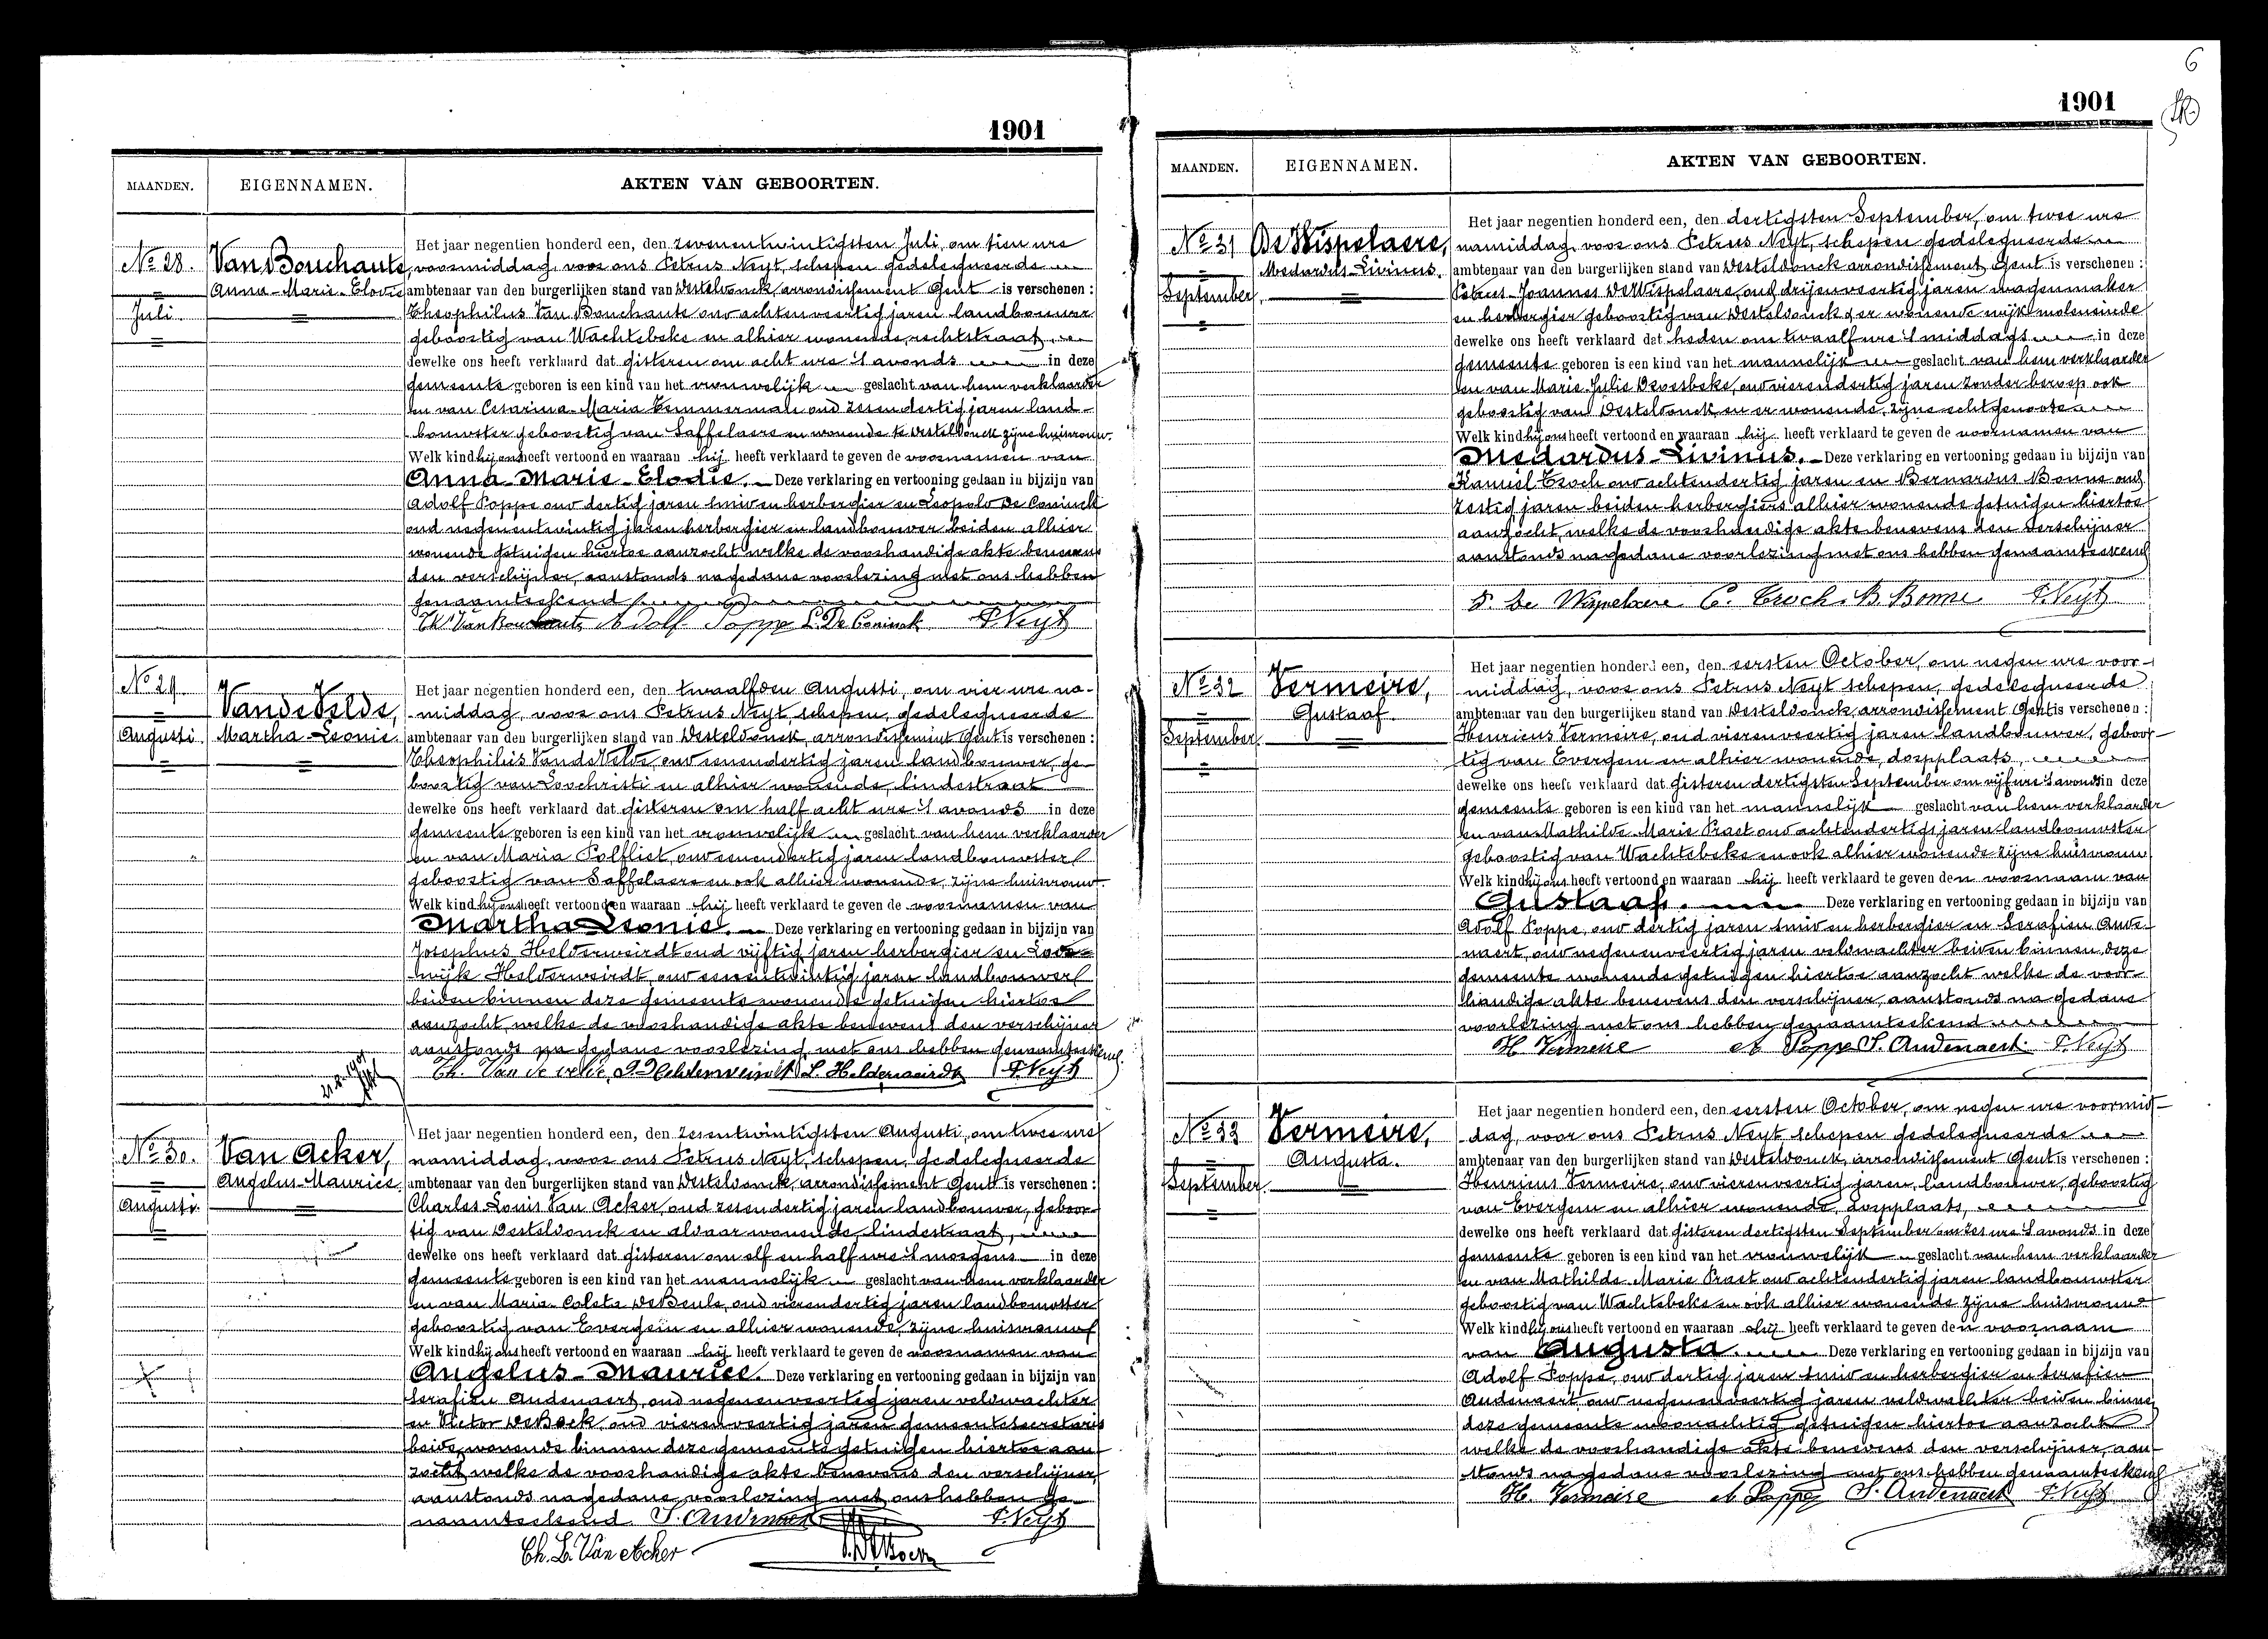 1901
MAANDEN. EIGENNAMEN. AKTEN VAN GEBOORTEN.
No 28. Van Bouchaute,
Anna-Marie-Elodie
Juli
Het jaar negentien honderd een, den zevenentwintigsten Juli, om tien ure
voormiddag, voor ons Petrus Neyt, schepen gedelegueerde
ambtenaar van den burgerlijken stand van Desteldonck, arrondissement Gent is verschenen :
Theophilus Van Bouchaute oud achtenveertig jaren landbouwer
geboortig van Wachtebeke en alhier wonende, rechtstraat,
dewelke ons heeft verklaard dat gisteren om acht ure 's avonds in deze
gemeente geboren is een kind van het vrouwelijk geslacht van hem verklaarder
en van Cesarina-Maria Temmerman oud zesendertig jaren land-
bouwster geboortig van Saffelaere en wonende te Desteldonck zijne huisvrouw.
Welk kind hij ons heeft vertoond en waaraan hij heeft verklaard te geven de voornamen van
Anna-Marie-Elodie. Deze verklaring en vertooning gedaan in bijzijn van
Adolf Poppe oud dertig jaren smid en herbergier en Leopold De Coninck
oud negenentwintig jaren herbergier en landbouwer beiden alhier
wonende getuigen hiertoe aanzocht welke de voorhandige akte benevens
den verschijner, aanstonds na gedane voorlezing met ons hebben
genaamteekend
Th. Van Bouchaute Adolf Poppe L. De Coninck P. Neyt
No 29. Van de Velde,
Martha-Leonie.
Augusti
Het jaar negentien honderd een, den twaalfden Augusti, om vier ure na-
middag, voor ons Petrus Neyt, schepen, gedelegueerde
ambtenaar van den burgerlijken stand van Desteldonck, arrondissement Gent is verschenen :
Theophilus Van de Velde, oud eenendertig jaren landbouwer, ge-
boortig van Loochristi en alhier wonende, lindestraat
dewelke ons heeft verklaard dat gisteren om half acht ure 's avonds in deze
gemeente geboren is een kind van het vrouwelijk geslacht van hem verklaarder
en van Maria Polfliet, oud eenendertig jaren landbouwster
geboortig van Saffelaere en ook alhier wonende, zijne huisvrouw.
Welk kind hij ons heeft vertoond en waaraan hij heeft verklaard te geven de voornamen van
Martha Leonie. Deze verklaring en vertooning gedaan in bijzijn van
Josephus Helderweirdt oud vijftig jaren herbergier en Lode-
wijk Helderweirdt, oud eenentwintig jaren landbouwer
beiden binnen deze gemeente wonende getuigen hiertoe
aanzocht, welke de voorhandige akte benevens den verschijner
aanstonds na gedane voorlezing met ons hebben genaamteekend.
Th. Van de velde J. Helderweirdt L. Helderweirdt P. Neyt
No 30. Van Acker,
Angelus-Maurice.
Augusti.
Het jaar negentien honderd een, den zesentwintigsten Augusti, om twee ure
namiddag, voor ons Petrus Neyt, schepen, gedelegueerde
ambtenaar van den burgerlijken stand van Desteldonck, arrondissement Gent is verschenen :
Charles Louis Van Acker, oud zesendertig jaren landbouwer, geboor-
tig van Desteldonck en aldaar wonende, lindestraat,
dewelke ons heeft verklaard dat gisteren om elf en half ure 's morgens in deze
gemeente geboren is een kind van het mannelijk geslacht van hem verklaarder
en van Maria-Coleta De Beule, oud vierendertig jaren landbouwster
geboortig van Evergem en alhier wonende, zijne huisvrouw
Welk kind hij ons heeft vertoond en waaraan hij heeft verklaard te geven de voornamen van
Angelus-Maurice. Deze verklaring en vertooning gedaan in bijzijn van
Serafien Audenaert, oud negenenveertig jaren veldwachter
en Victor De Bock, oud vierenveertig jaren gemeentesecretaris
beide wonende binnen deze gemeente getuigen hiertoe aan-
zocht welke de voorhandige akte benevens den verschijner,
aanstonds na gedane voorlezing met ons hebben ge-
naamteekend S. Audenaert P. Neyt
Ch. L. Van Acker
6
1901
MAANDEN. EIGENNAMEN. AKTEN VAN GEBOORTEN.
No 31 De Wispelaere,
Medardus-Livinus.
September,
Het jaar negentien honderd een, den dertigsten September, om twee ure
namiddag, voor ons Petrus Neyt, schepen gedelegueerde
ambtenaar van den burgerlijken stand van Desteldonck arrondissement Gent is verschenen :
Petrus-Joannes De Wispelaere, oud drijenveertig jaren wagenmaker
en herbergier geboortig van Desteldonck er wonende wijk moleneinde
dewelke ons heeft verklaard dat heden om twaalf ure 's middags in deze
gemeente geboren is een kind van het mannelijk geslacht van hem verklaarder
en van Marie-Julie Dvoesbeke, oud vierendertig jaren zonder beroep ook
geboortig van Desteldonck en er wonende, zijne echtgenoote
Welk kind hij ons heeft vertoond en waaraan hij heeft verklaard te geven de voornamen van
Medardus-Livinus. Deze verklaring en vertooning gedaan in bijzijn van
Kamiel Troch oud achtendertig jaren en Bernardus Bonne oud
zestig jaren beiden herbergiers alhier wonende getuigen hiertoe
aanzocht, welke de voorhandige akte benevens den verschijner
aanstonds na gedane voorlezing met ons hebben genaamteekend
P. De Wispelaere C. Troch. B. Bonne P. Neyt
No 32 Vermeire,
Gustaaf.
September.
Het jaar negentien honderd een, den eersten October, om negen ure voor-
middag, voor ons Petrus Neyt schepen, gedelegueerde
ambtenaar van den burgerlijken stand van Desteldonck, arrondissement Gent is verschenen :
Henricus Vermeire, oud vierenveertig jaren landbouwer, geboor-
tig van Evergem en alhier wonende, dorpplaats,
dewelke ons heeft verklaard dat gisteren dertigsten September om vijf ure 's avonds in deze
gemeente geboren is een kind van het mannelijk geslacht van hem verklaarder
en van Mathilde-Marie Praet oud achtendertig jaren landbouwster
geboortig van Wachtebeke en ook alhier wonende zijne huisvrouw
Welk kind hij ons heeft vertoond en waaraan hij heeft verklaard te geven den voornaam van
Gustaaf. Deze verklaring en vertooning gedaan in bijzijn van
Adolf Poppe, oud dertig jaren smid en herbergier en Serafien Aude-
naert, oud negenenveertig jaren veldwachter beiden binnen deze
gemeente wonende getuigen hiertoe aanzocht welke de voor-
handige akte benevens den verschijner, aanstonds na gedane
voorlezing met ons hebben genaamteekend
H. Vermeire A Poppe S. Audenaert. P. Neyt
No 33 Vermeire,
Augusta.
September.
Het jaar negentien honderd een, den eersten October, om negen ure voormid-
dag, voor ons Petrus Neyt schepen gedelegueerde
ambtenaar van den burgerlijken stand van Desteldonck, arrondissement Gent is verschenen :
Henricus Vermeire, oud vierenveertig jaren, landbouwer, geboortig
van Evergem en alhier wonende, dorpplaats,
dewelke ons heeft verklaard dat gisteren dertigsten September om zes ure 's avonds in deze
gemeente geboren is een kind van het vrouwelijk geslacht van hem verklaarder
en van Mathilde-Marie Praet oud achtendertig jaren landbouwster
geboortig van Wachtebeke en ook alhier wonende zijne huisvrouw
Welk kind hij ons heeft vertoond en waaraan hij heeft verklaard te geven den voornaam
van Augusta. Deze verklaring en vertooning gedaan in bijzijn van
Adolf Poppe, oud dertig jaren smid en herbergier en Serafien
Audenaert, oud negenenveertig jaren veldwachter beiden binnen
deze gemeente woonachtig getuigen hiertoe aanzocht
welke de voorhandige akte benevens den verschijner, aan-
stonds na gedane voorlezing met ons hebben genaamteekend
H. Vermeire A Poppe S. Audenaert P. Neyt